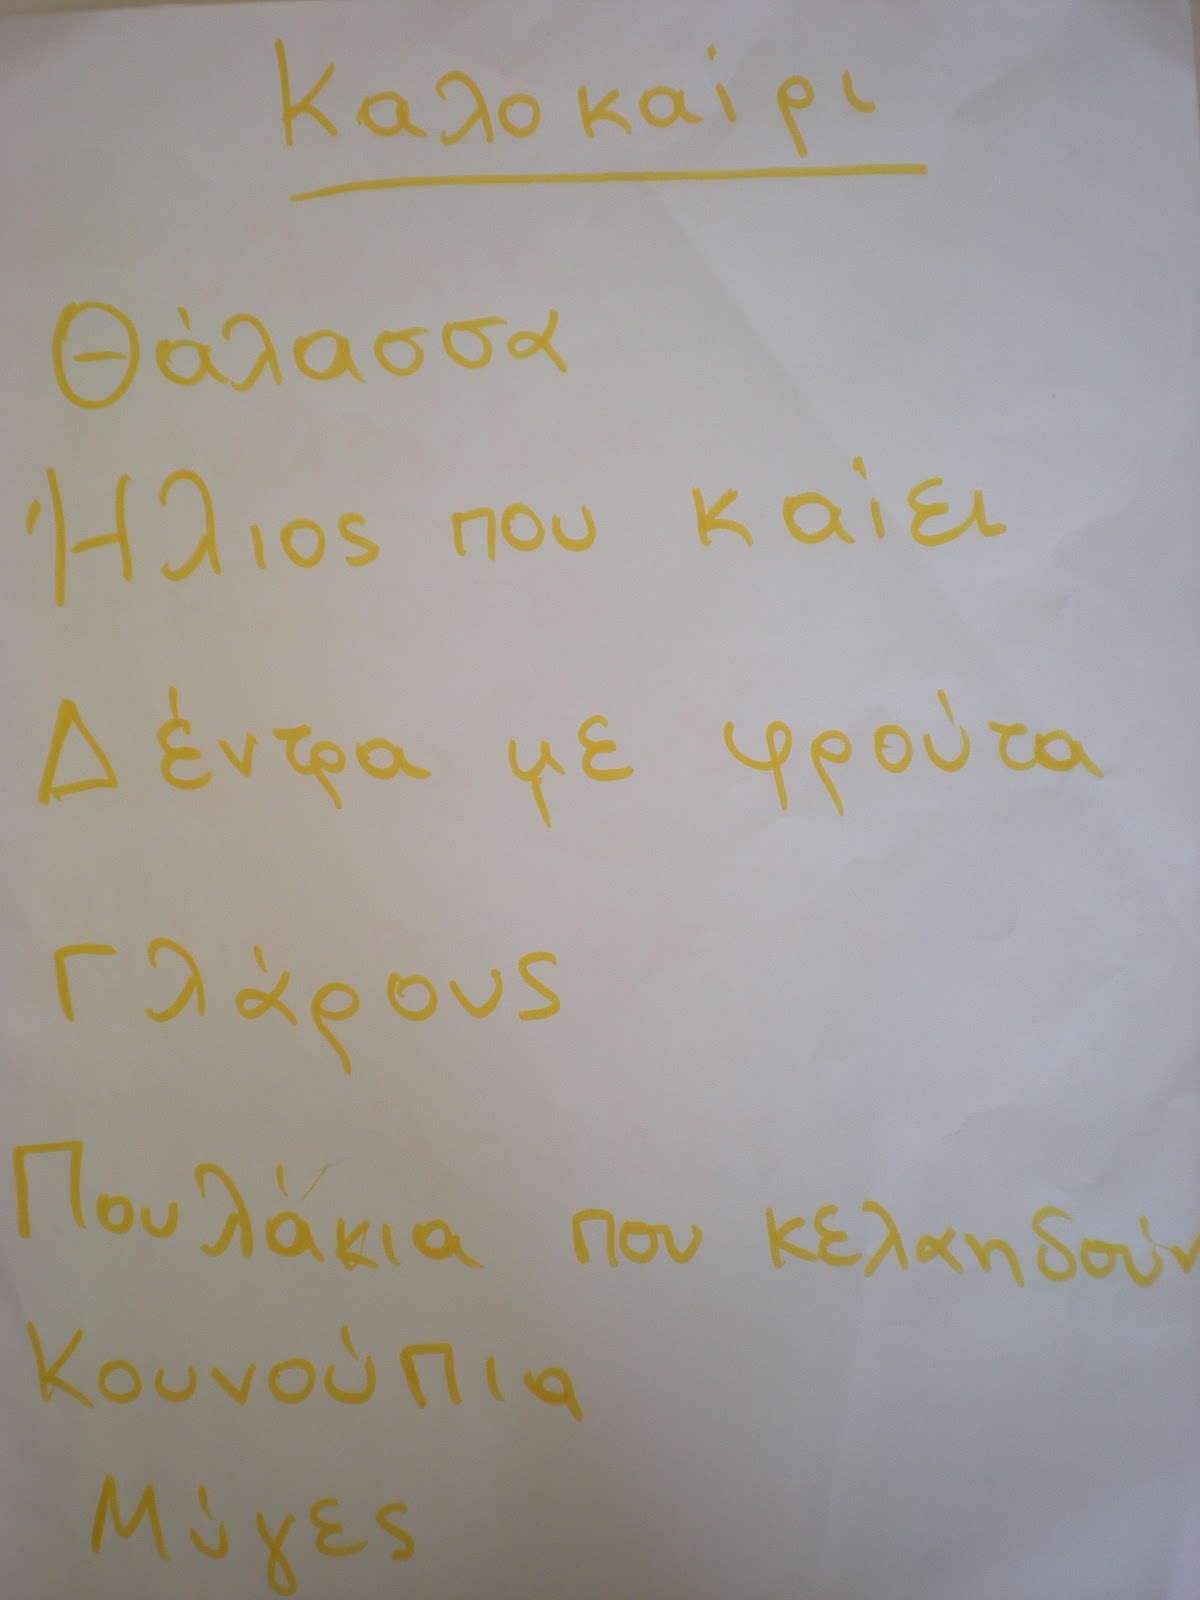 Καλοκαίρι
Θάλασσα
Ήλιος που καίει
Δέντρα με φρούτα
Γλάρους
Πουλάκια που κελαηδούν
Κουνούπια
Μύγες